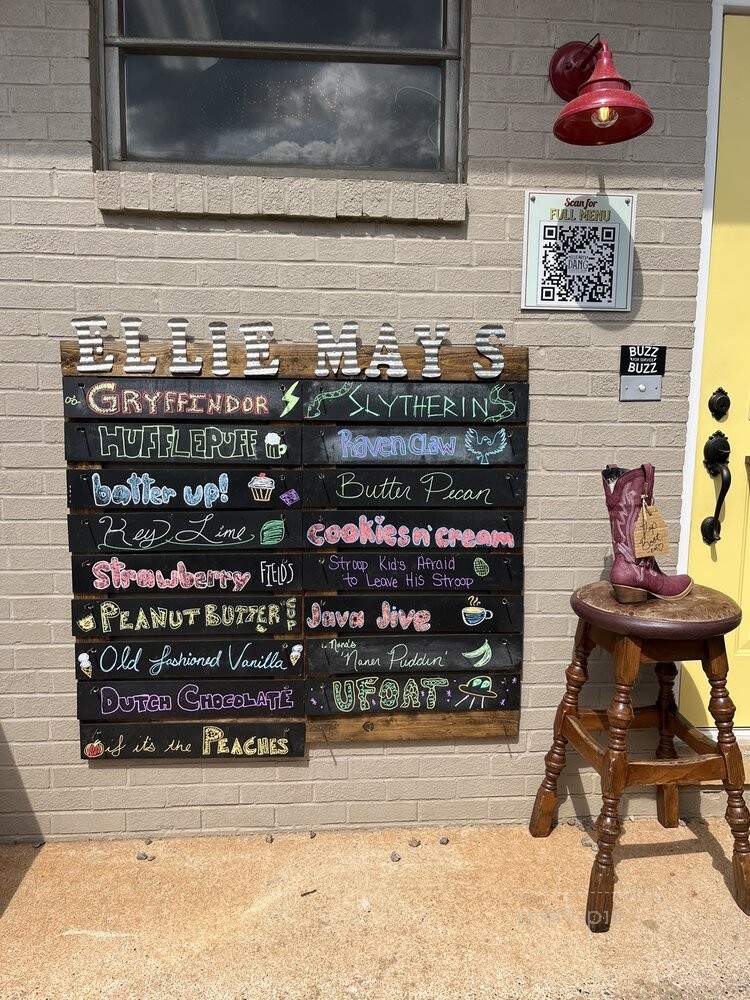 Scan for
FULL MENU
DANG
BUZZ
FOR SERVICE
BUZZ
ELLIE MAY'S
GRYFFINDOR
SLYTHERIN
HUFFLEPUFF
RavenClaw
batter up!
Butter Pecan
Key Lime
cookies n' cream
Strawberry FIELDS
Stroop Kid's Afraid
to Leave His Stroop
PEANUT BUTTER CUP
Java Jive
Old fashioned Vanilla
Nana's
Naner Puddin'
DUTCH CHOCOLATE
UFOAT
if it's the PEACHES